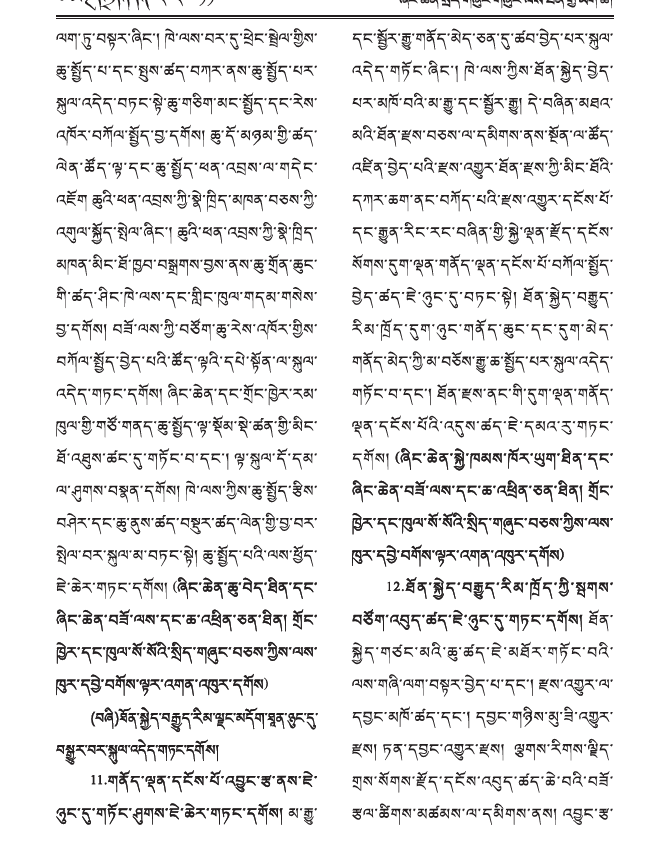 ལག་ཏུ་བསྟར་ཞིང་། ཁེ་ལས་བར་དུ་ཕྲེང་སྦྲེལ་གྱིས་
ཆུ་སྤྱོད་པ་དང་སྤུས་ཚད་བཀར་ནས་ཆུ་སྤྱོད་པར་
སྐུལ་འདེད་བཏང་སྟེ་ཆུ་གཅིག་མང་སྤྱོད་དང་རེས་
འཁོར་བཀོལ་སྤྱོད་བྱ་དགོས། ཆུ་དོ་མཉམ་གྱི་ཚད་
ལེན་ཚོད་ལྟ་དང་ཆུ་སྤྱོད་ཕན་འབྲས་ལ་གདེང་
འཇོག ཆུའི་ཕན་འབྲས་ཀྱི་སྣེ་ཁྲིད་མཁན་བཅས་ཀྱི་
འགུལ་སྐྱོད་སྤེལ་ཞིང་། ཆུའི་ཕན་འབྲས་ཀྱི་སྣེ་ཁྲིད་
མཁན་མིང་ཐོ་ཁྱབ་བསྒྲགས་བྱས་ནས་ཆུ་གྲོན་ཆུང་
གི་ཚད་ཤིང་ཁེ་ལས་དང་གླིང་ཁུལ་གདམ་གསེས་
བྱ་དགོས། བཟོ་ལས་ཀྱི་བཙོག་ཆུ་རེས་འཁོར་གྱིས་
བཀོལ་སྤྱོད་བྱེད་པའི་ཚོད་ལྟའི་དཔེ་སྟོན་ལ་སྐུལ་
འདེད་གཏང་དགོས། ཞིང་ཆེན་དང་གྲོང་ཁྱེར་རམ་
ཁུལ་གྱི་གཙོ་གནད་ཆུ་སྤྱོད་ལྟ་སྡོམ་སྡེ་ཚན་གྱི་མིང་
ཐོ་འཐུས་ཚང་དུ་གཏོང་བ་དང་། ལྟ་སྐུལ་དོ་དམ་
ལ་ཤུགས་བསྣན་དགོས། ཁེ་ལས་ཀྱིས་ཆུ་སྤྱོད་རྩིས་
བཤེར་དང་ཆུ་ནུས་ཚད་བསྡུར་ཚད་ལེན་གྱི་བྱ་བར་
སྤེལ་བར་སྐུལ་མ་བཏང་སྟེ། ཆུ་སྤྱོད་པའི་ལས་ཕྱོད་
ཇེ་ཆེར་གཏང་དགོས། (ཞིང་ཆེན་ཆུ་བེད་ཐིན་དང་
ཞིང་ཆེན་བཟོ་ལས་དང་ཆ་འཕྲིན་ཅན་ཐིན། གྲོང་
ཁྱེར་དང་ཁུལ་སོ་སོའི་སྲིད་གཞུང་བཅས་ཀྱིས་ལས་
ཁུར་དབྱེ་བགོས་ལྟར་འགན་འཁུར་དགོས)
(བཞི)ཐོན་སྐྱེད་བརྒྱུད་རིམ་ལྗང་མདོག་ཐྭན་ཉུང་དུ་
བསྒྱུར་བར་སྐུལ་འདེད་གཏང་དགོས།
11.གནོད་ལྡན་དངོས་པོ་འབྱུང་རྩ་ནས་ཇེ་
ཉུང་དུ་གཏོང་ཤུགས་ཇེ་ཆེར་གཏང་དགོས། མ་རྒྱུ་
དང་སྦྱོར་རྒྱུ་གནོད་མེད་ཅན་དུ་ཚབ་བྱེད་པར་སྐུལ་
འདེད་གཏོང་ཞིང་། ཁེ་ལས་ཀྱིས་ཐོན་སྐྱེད་བྱེད་
པར་མཁོ་བའི་མ་རྒྱུ་དང་སྦྱོར་རྒྱུ། དེ་བཞིན་མཐའ་
མའི་ཐོན་རྫས་བཅས་ལ་དམིགས་ནས་སྔོན་ལ་ཚོད་
འཛིན་བྱེད་པའི་རྫས་འགྱུར་ཐོན་རྫས་ཀྱི་མིང་ཐོའི་
དཀར་ཆག་ནང་བཀོད་པའི་རྫས་འགྱུར་དངོས་པོ་
དང་རྒྱུན་རིང་རང་བཞིན་གྱི་སྐྱེ་ལྡན་རྫོད་དངོས་
སོགས་དུག་ལྡན་གནོད་ལྡན་དངོས་པོ་བཀོལ་སྤྱོད་
བྱེད་ཚད་ཇེ་ཉུང་དུ་བཏང་སྟེ། ཐོན་སྐྱེད་བརྒྱུད་
རིམ་ཁྲོད་དུག་ཉུང་གནོད་ཆུང་དང་དུག་མེད་
གནོད་མེད་ཀྱི་མ་བཅོས་རྒྱུ་ཆ་སྤྱོད་པར་སྐུལ་འདེད་
གཏོང་བ་དང་། ཐོན་རྫས་ནང་གི་དུག་ལྡན་གནོད་
ལྡན་དངོས་པོའི་འདུས་ཚད་ཇེ་དམའ་རུ་གཏང་
དགོས། (ཞིང་ཆེན་སྐྱེ་ཁམས་ཁོར་ཡུག་ཐིན་དང་
ཞིང་ཆེན་བཟོ་ལས་དང་ཆ་འཕྲིན་ཅན་ཐིན། གྲོང་
ཁྱེར་དང་ཁུལ་སོ་སོའི་སྲིད་གཞུང་བཅས་ཀྱིས་ལས་
ཁུར་དབྱེ་བགོས་ལྟར་འགན་འཁུར་དགོས)
12.ཐོན་སྐྱེད་བརྒྱུད་རིམ་ཁྲོད་ཀྱི་སྦགས་
བཙོག་འབུད་ཚད་ཇེ་ཉུང་དུ་གཏང་དགོས། ཐོན་
སྐྱེད་གཙང་མའི་ཆུ་ཚད་ཇེ་མཐོར་གཏོང་བའི་
ལས་གཞི་ལག་བསྟར་བྱེད་པ་དང་། རྫས་འགྱུར་ལ་
དབྱང་མཁོ་ཚད་དང་། དབྱང་གཉིས་མུ་ཟི་འགྱུར་
རྫས། ཏན་དབྱང་འགྱུར་རྫས། ལྕགས་རིགས་ལྗིད་
གྲས་སོགས་རྫོད་དངོས་འབུད་ཚད་ཆེ་བའི་བཟོ་
རྩལ་ཚིགས་མཚམས་ལ་དམིགས་ནས། འབྱུང་རྩ་